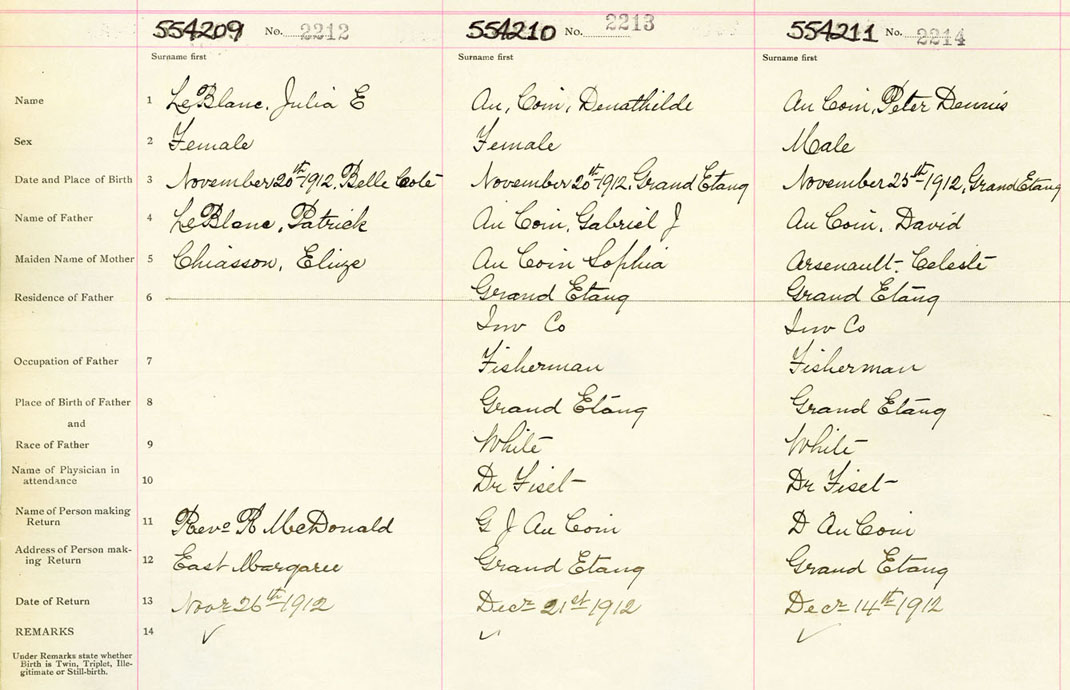 554209 No. 2212 554210 No. 2213 554211 No. 2214
Surname first Surname first Surname first
Name 1 LeBlanc, Julia E Au, Coin, Denathilde Au Coin, Peter Dennis
Sex 2 Female Female Male
Date and Place of Birth 3 November 20th 1912, Belle Cote November 20th 1912, Grand Etang November 25th 1912, Grand Etang
Name of Father 4 LeBlanc, Patrick Au Coin, Gabriel J Au Coin, David
Maiden Name of Mother 5 Chiasson, Elize Au Coin Sophia Arsenault- Celeste
Residence of Father 6 Grand Etang Grand Etang
Inv Co Inv Co
Occupation of Father 7 Fisherman Fisherman
Place of Birth of Father 8 Grand Etang Grand Etang
and
Race of Father 9 White White
Name of Physician in
attendance 10 Dr Fiset Dr Fiset
Name of Person making
Return 11 Revd R McDonald G J Au Coin D Au Coin
Address of Person mak-
ing Return 12 East Margaree Grand Etang Grand Etang
Date of Return 13 Novr 26th 1912 Decr 21st 1912 Decr 14th 1912
REMARKS 14 ✓ ✓ ✓
Under Remarks state whether
Birth is Twin, Triplet, Ille-
gitimate or Still-birth.